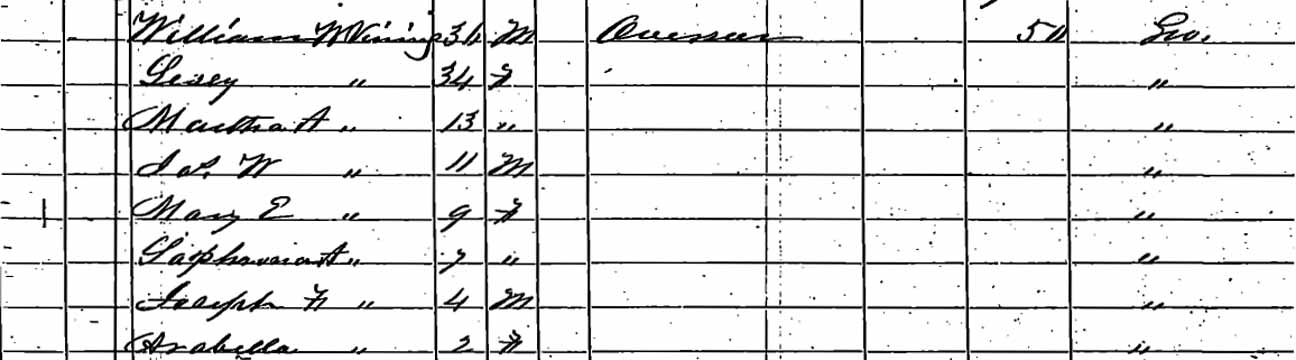 William W Vining 36 M Overseer 50 Geo.
34 F "
Martha A " 13 " "
Jas. W " 11 M "
Mary E " 9 F "
Saphronia A " 7 " "
Joseph F " 4 M "
Arabella " 2 F "